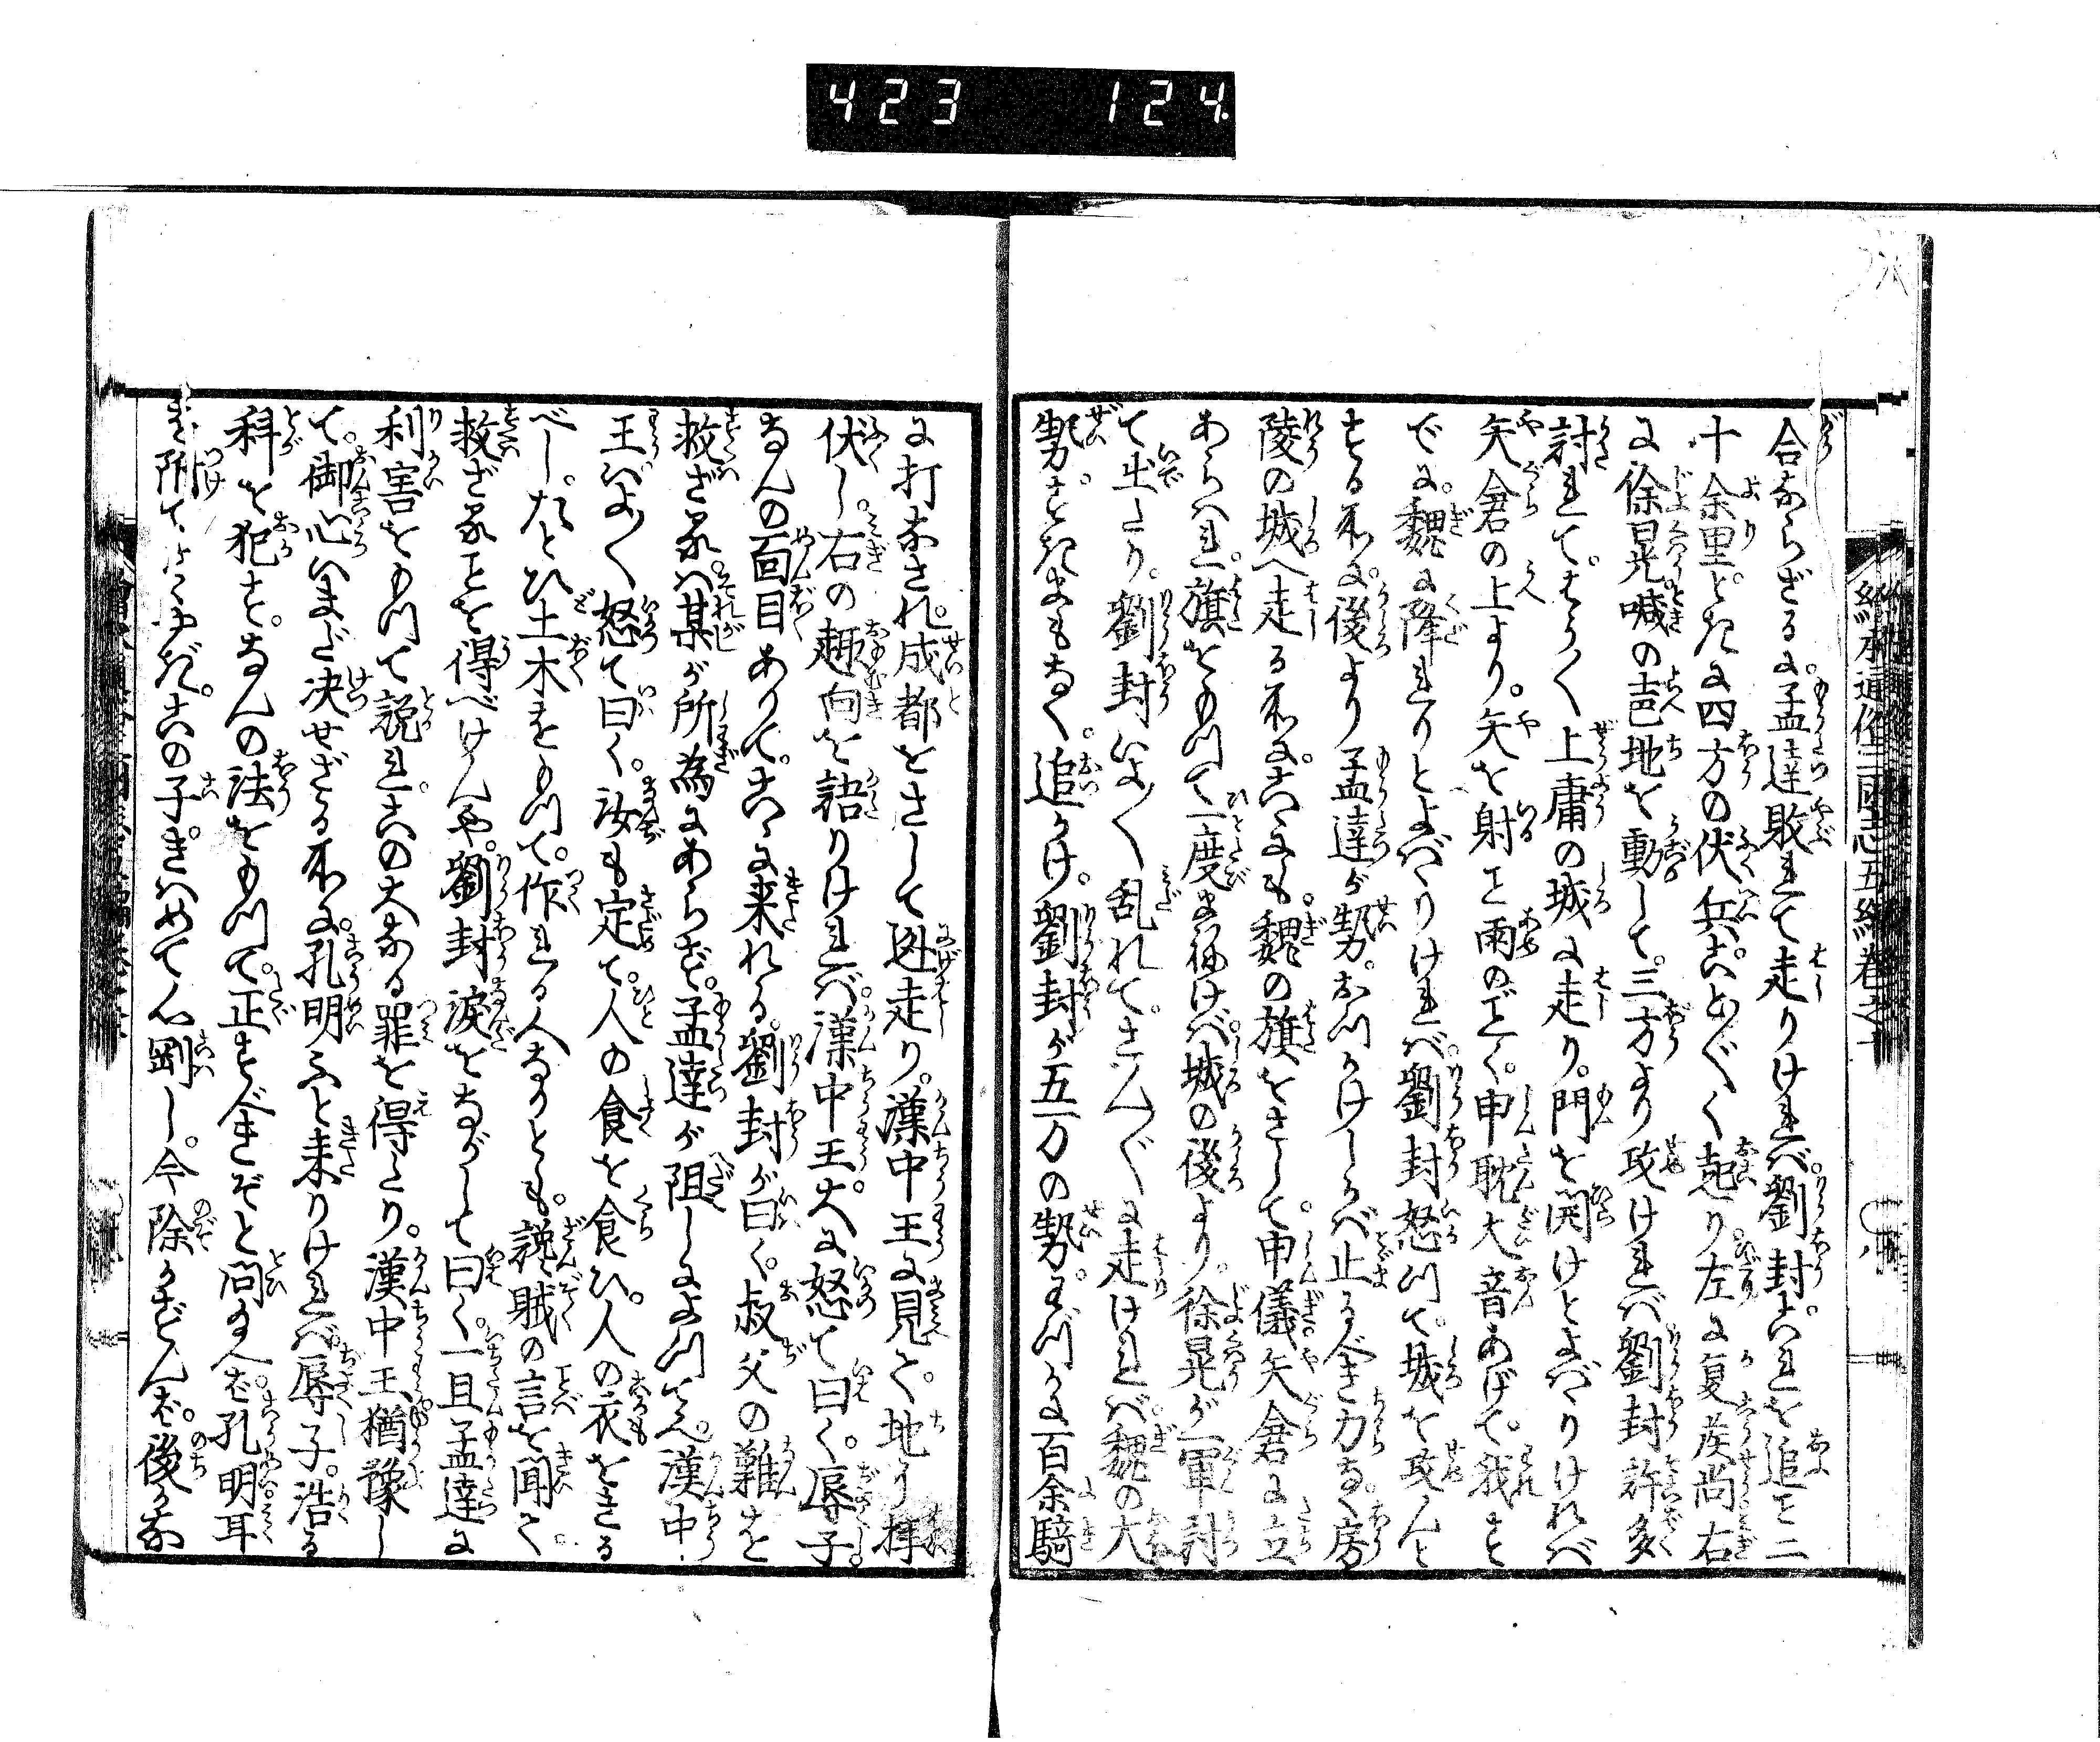 423 124
合ならざるに孟達敗れて走りければ。劉封これを追こと二
十余里ときに四方の伏兵ことごとく起り左に夏侯尚右
に徐晃喊の声地を動して。三方より攻ければ劉封許多
討れて。はうはう上庸の城に走り。門を開けとよばゝりければ
矢倉の上より。矢を射こと雨のごとく。申耽大音あげて。我す
でに。魏に降れりとよばゝりければ。劉封怒つて。城を攻んと
する所に。後より孟達が勢。おつかけしかば止るべき力なく房
陵の城へ走る所に。こゝにも。魏の旗をさして。申儀矢倉に立
あらはれ。旗をもつて一度まねけば。城の後より。徐晃が一軍討
て出たり。劉封いよいよ乱れて。さんざんに走ければ。魏の大
勢。すきまもなく。追かけ。劉封が五万の勢。わづかに百余騎
に打なされ。成都をさして迯走り。漢中王に見え。地に拝
伏し。右の趣向を語りければ。漢中王。大に怒て曰く。辱子。
なんの面目ありて。こゝに来れる。劉封が曰く。叔父の難を
救ざるは。某が所為にあらず。孟達が阻しによつてなり。漢中
王いよいよ怒て曰く。汝も定て。人の食を食ひ。人の衣をきる
べし。たとひ土木をもつて。作れる人なりとも。讒賊の言を聞て。
救ざることを得べけんや。劉封涙をながして曰く。一旦孟達に
利害をもつて説れ。この大なる罪を得たり。漢中王。猶豫し
て。御心いまだ決せざる所に。孔明ふと来りければ。辱子。浩る
科を犯す。なんの法をもつて。正すべきぞと問給へば。孔明耳
に附て。この子。きはめて心剛し。今除かずんば。後かな